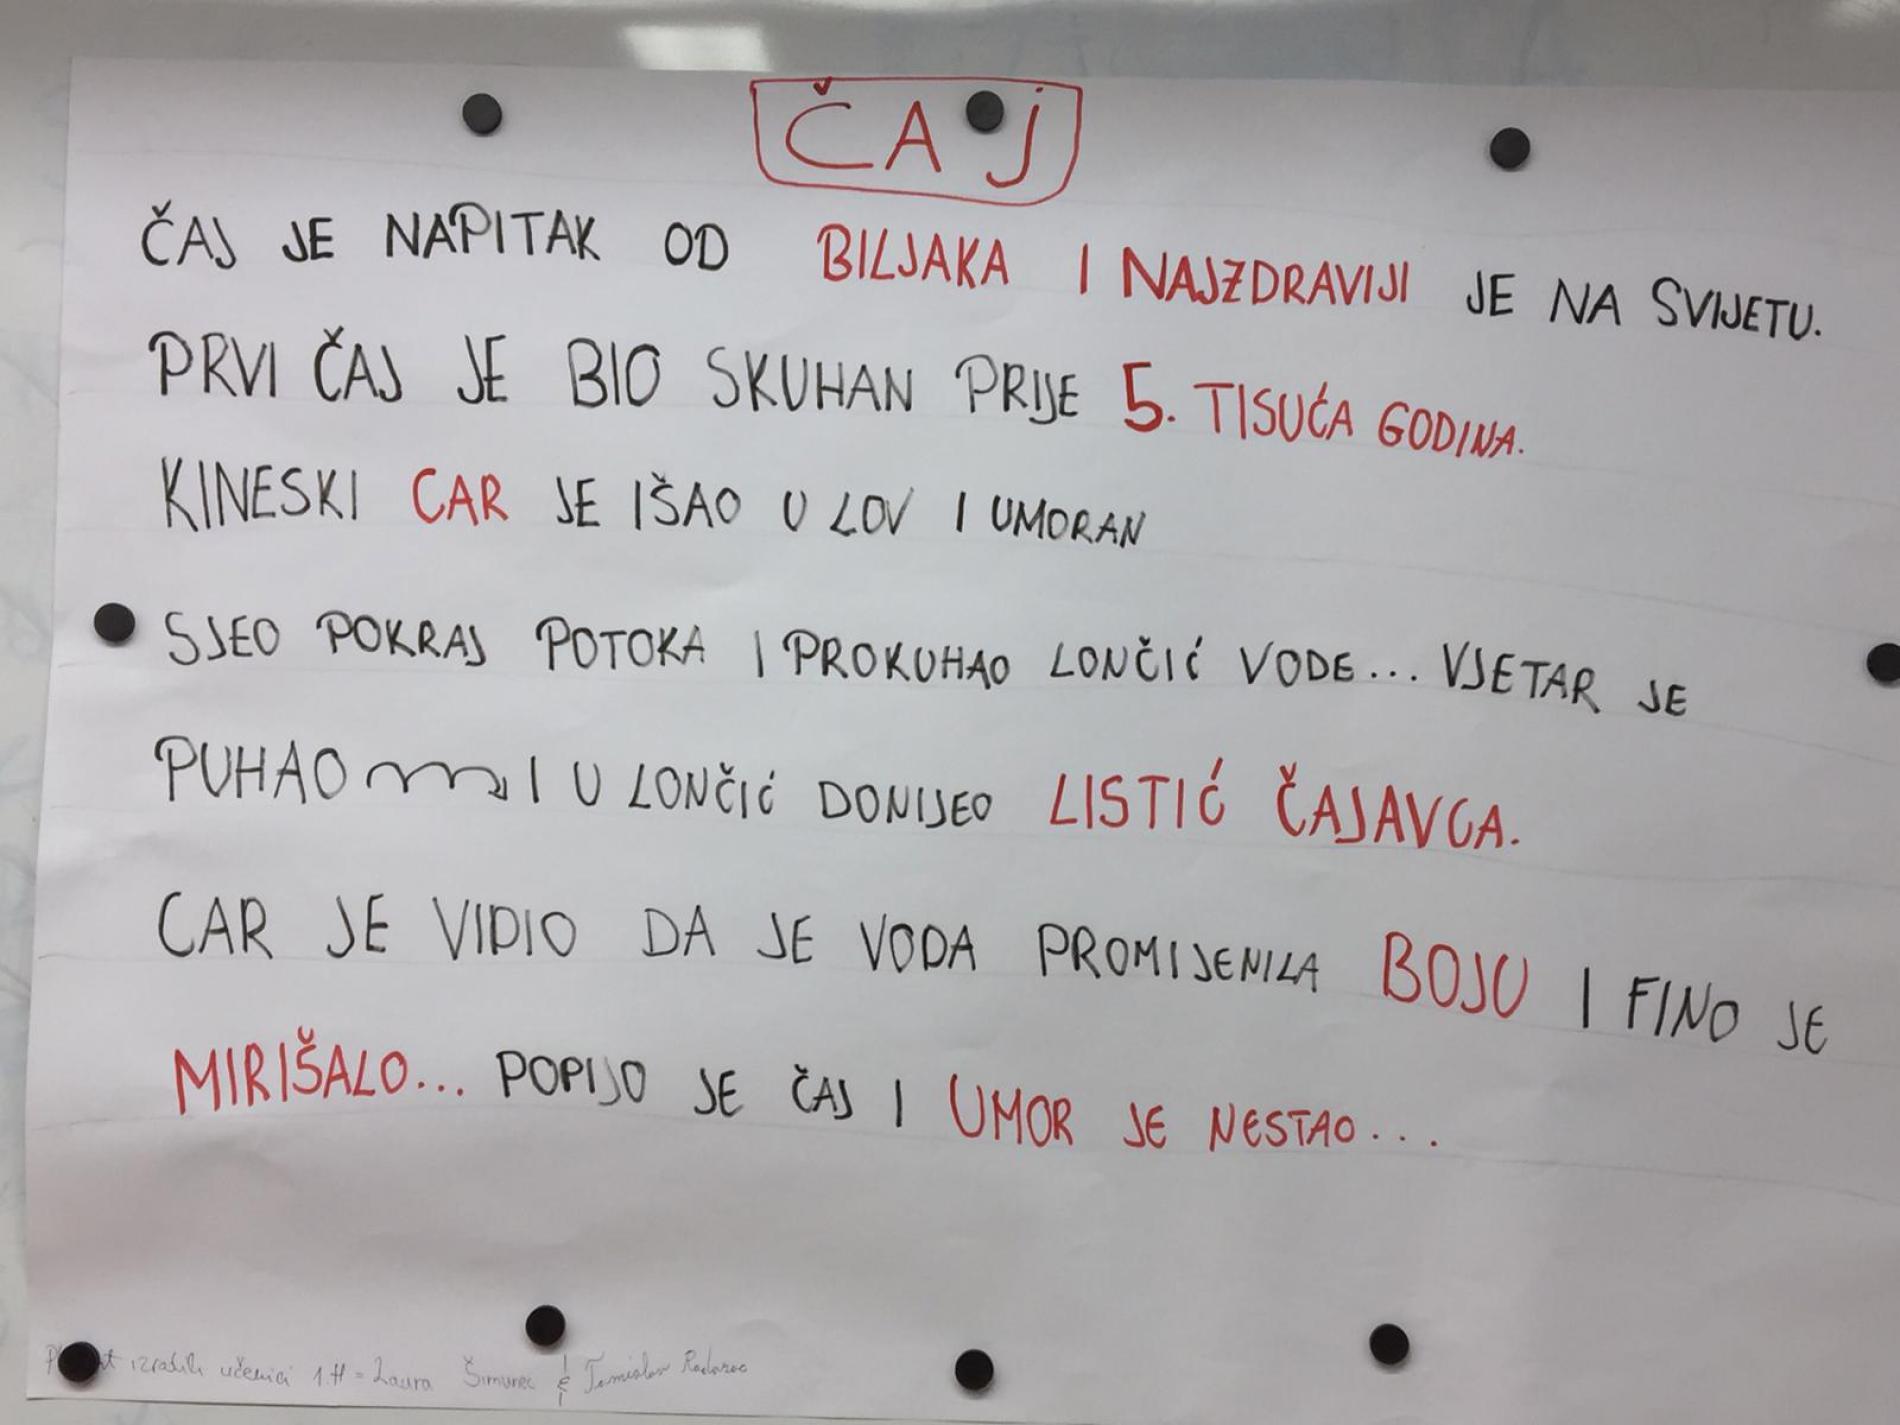 ČAJ
ČAJ JE NAPITAK OD BILJAKA I NAJZDRAVIJI JE NA SVIJETU.
PRVI ČAJ JE BIO SKUHAN PRIJE 5. TISUĆA GODINA.
KINESKI CAR JE IŠAO U LOV I UMORAN
SJEO POKRAJ POTOKA I PROKUHAO LONČIĆ VODE... VJETAR JE
PUHAO I U LONČIĆ DONIJEO LISTIĆ ČAJAVCA.
CAR JE VIDIO DA JE VODA PROMIJENILA BOJU I FINO JE
MIRIŠALO... POPIJO JE ČAJ I UMOR JE NESTAO...
izradili učenici 1.H = Laura Šimunec & Tomislav